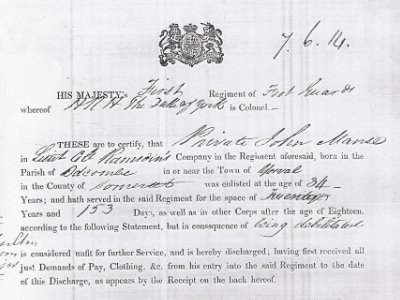 7.6.14.
HIS MAJESTY's First Regiment of Foot Guards
whereof HRH The Duke of York is Colonel.
THESE are to certify, that Private John Manse
in Lieut Col Company in the Regiment aforesaid, born in the
Parish of Odcombe in or near the Town of Yeovil
in the County of Somerset was enlisted at the age of 34
Years; and hath served in the said Regiment for the space of Twenty
Years and 153 Days, as well as in other Corps after the age of Eighteen,
according to the following Statement, but in consequence of being debilitated
is considered unfit for further Service, and is hereby discharged; having first received all
just Demands of Pay, Clothing, &c. from his entry into the said Regiment to the date
of this Discharge, as appears by the Receipt on the back hereof.